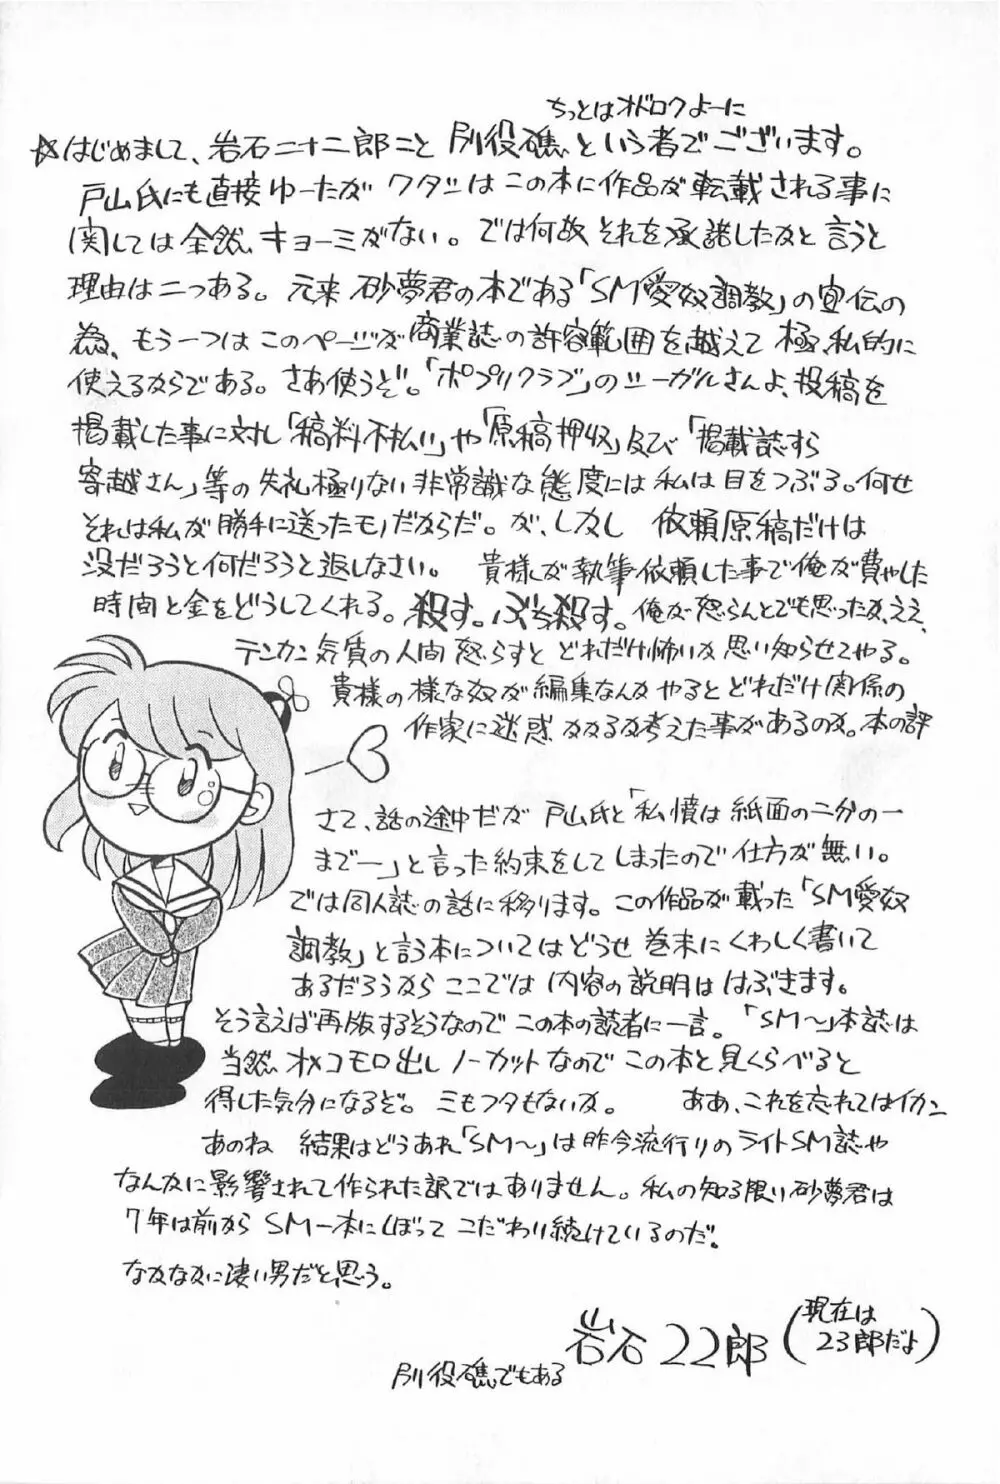 ちっとはオドロクよーに
☆はじめまして、岩石二十二郎こと 別役礁という者でございます。
戸山氏にも直接ゆーたが ワタシはこの本に作品が転載される事に
関しては全然キョーミがない。では何故それを承諾したかと言うと
理由は二つある。元来 砂夢君の本である「SM愛奴調教」の宣伝の
為、もう一つはこのページが商業誌の許容範囲を越えて極私的に
使えるからである。さあ使うぞ。「ポプリクラブ」のシーガルさんよ、投稿を
掲載した事に対し「稿料不払い」や「原稿押収」及び「掲載誌すら
寄越さん」等の失礼極りない非常識な態度には私は目をつぶる。何せ
それは私が勝手に送ったモノだからだ。が、しかし 依頼原稿だけは
没だろうと何だろうと返しなさい。 貴様が執筆依頼した事で俺が費やした
時間と金をどうしてくれる。殺す。ぶち殺す。俺が怒らんとでも思ったか、ええ、
テンカン気質の人間怒らすと どれだけ怖いか思い知らせてやる。
貴様の様な奴が編集なんかやるとどれだけ関係の
作家に迷惑かかるか考えた事があるのか。本の評
さて、話の途中だが 戸山氏と「私憤は紙面の二分の一
まで―」と言った約束をしてしまったので仕方が無い。
では同人誌の話に移ります。この作品が載った「SM愛奴
調教」と言う本についてはどうせ 巻末にくわしく書いて
あるだろうから ここでは 内容の説明は はぶきます。
そう言えば再版するそうなので この本の読者に一言。「SM〜」本誌は
当然 オメコモロ出し ノーカットなので この本と見くらべると
得した気分になるぞ。 ミもフタもないか。 ああ、これを忘れてはイカン
あのね 結果はどうあれ「SM〜」は昨今流行りのライトSM誌や
なんかに影響されて作られた訳ではありません。私の知る限り砂夢君は
7年は前から SM一本にしぼって こだわり続けているのだ。
なかなかに凄い男だと思う。
岩石22郎(現在は
23郎だよ)
別役礁でもある